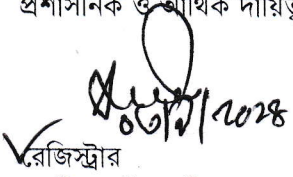 প্রশাসনিক ও আর্থিক দায়িত্ব
২০২৪
রেজিস্ট্রার